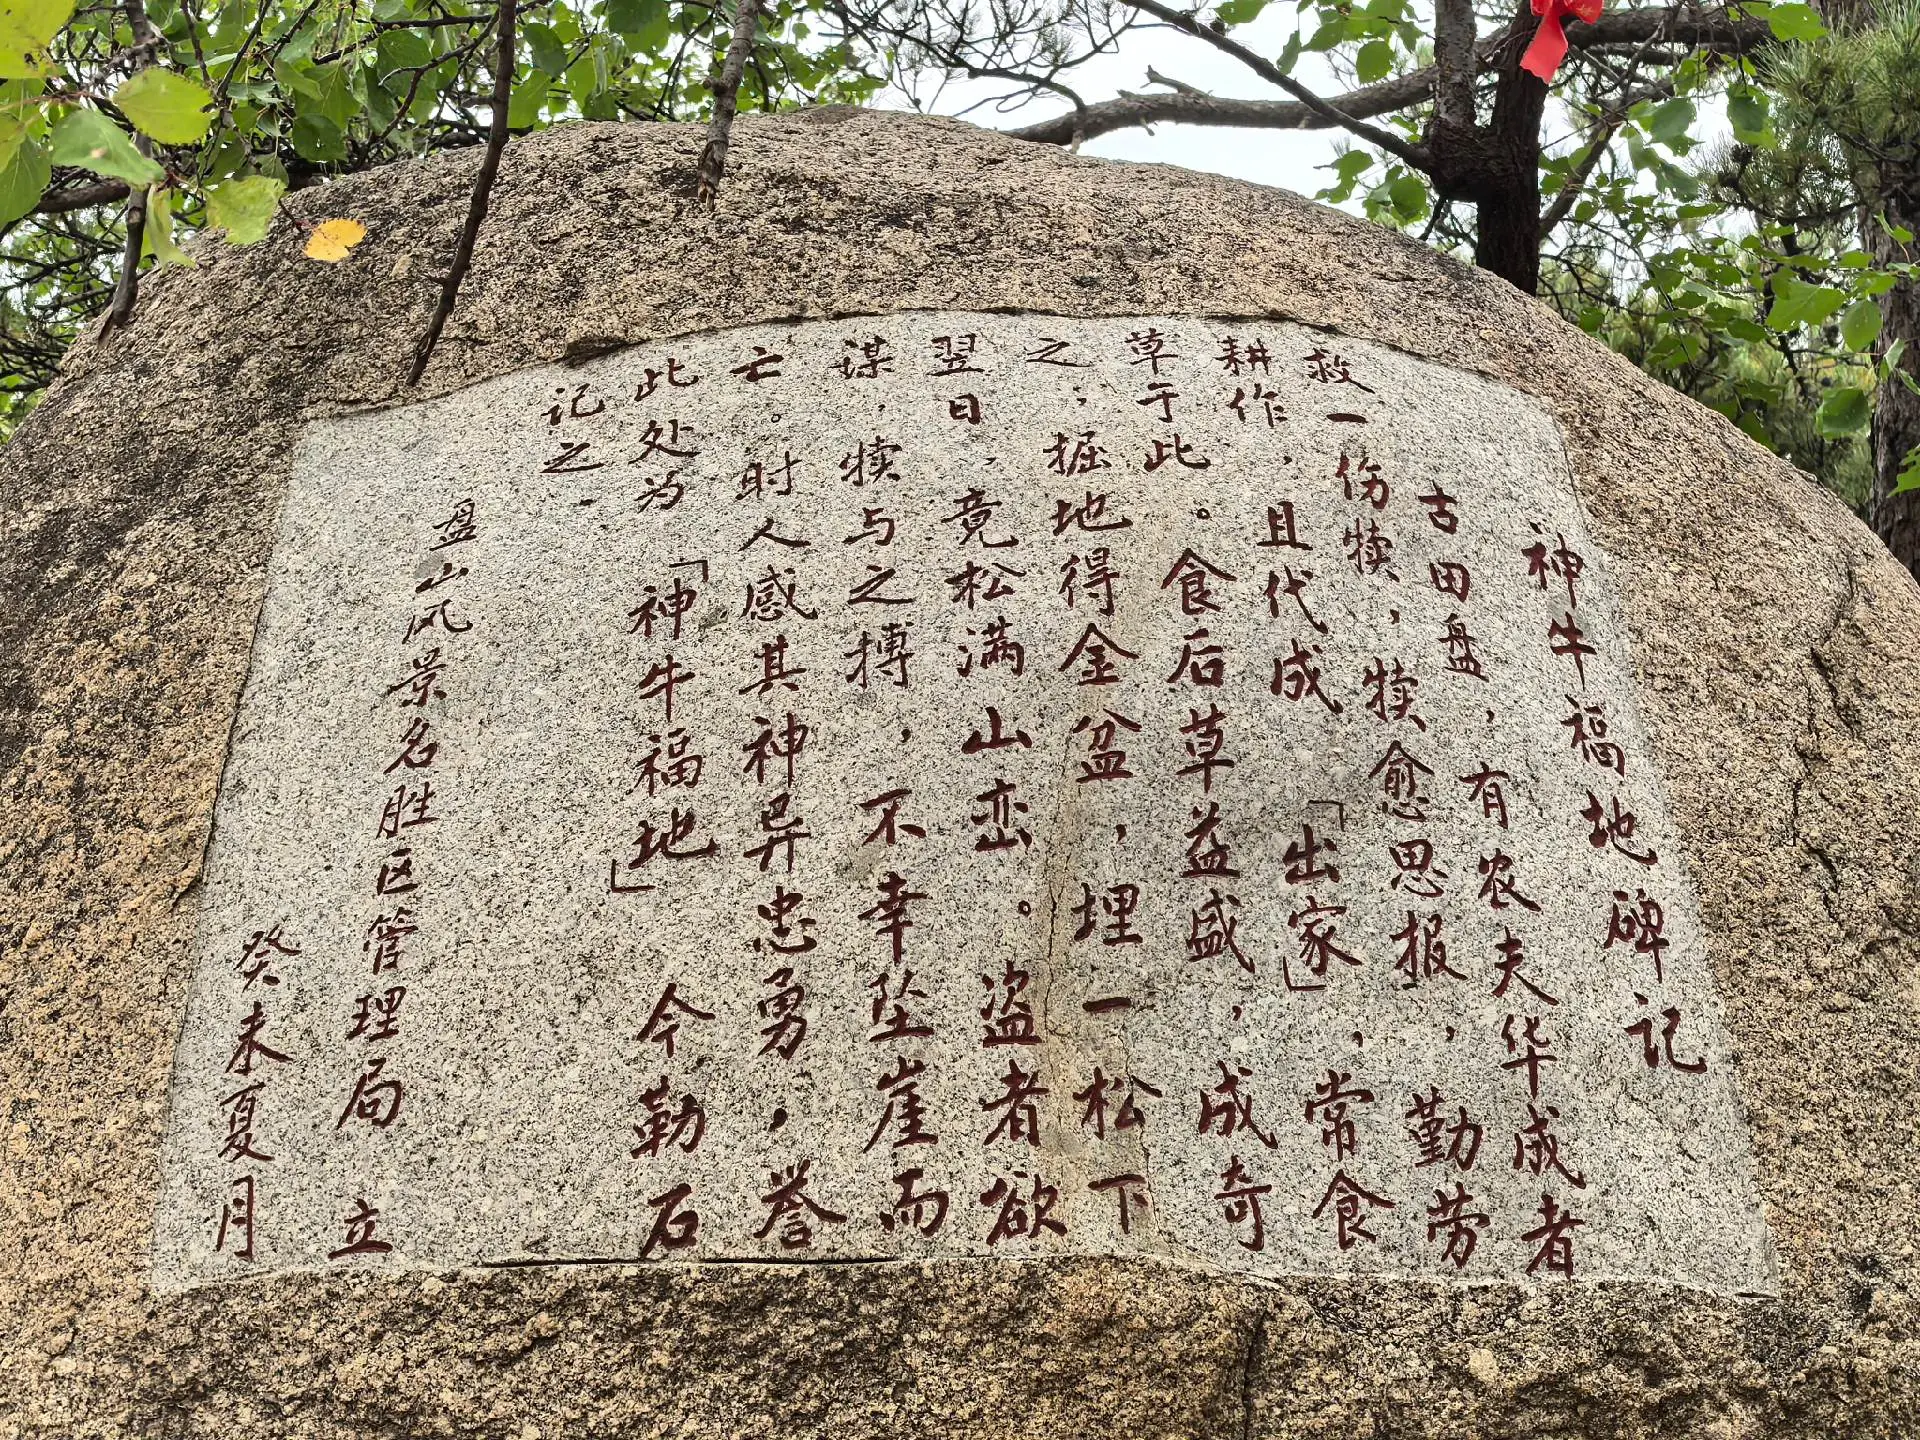 神牛福地碑记
古田盘，有农夫华成者
救一伤犊，犊愈思报，勤劳
耕作，且代成「出家」，常食
草于此。食后草益盛，成奇
之，掘地得金盆，埋一松下
翌日，竟松满山峦。盗者欲
谋，犊与之搏，不幸坠崖而
亡。时人感其神异忠勇，誉
此处为「神牛福地」今勒石
记之．
盘山风景名胜区管理局 立
癸未夏月